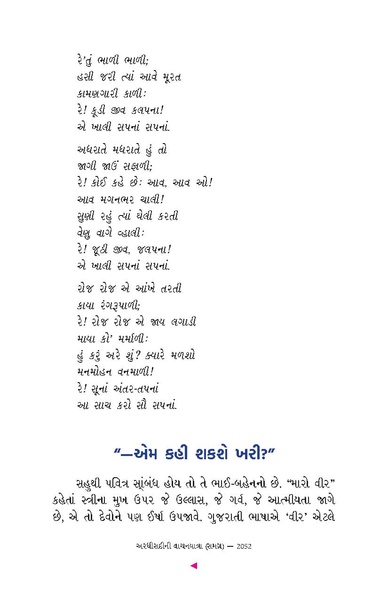 રે'તું ભાળી ભાળી;
હસી જરી ત્યાં આવે મૂરત
કામણગારી કાળીઃ
રે! કૂડી જીવ કલપના!
એ ખાલી સપનાં સપનાં.
અધરાતે મધરાતે હું તો
જાગી જાઉં સફાળી;
રે! કોઈ કહે છેઃ આવ, આવ ઓ!
આવ મગનભર ચાલી!
સુણી રહું ત્યાં ઘેલી કરતી
વેણુ વાગે વ્હાલીઃ
રે! જૂઠી જીવ, જલપના!
એ ખાલી સપનાં સપનાં.
રોજ રોજ એ આંખે તરતી
કાયા રંગરૂપાળી;
રે! રોજ રોજ એ જાય લગાડી
માયા કો' મર્માળીઃ
હું કરું અરે શું? ક્યારે મળશો
મનમોહન વનમાળી!
રે! સૂનાં અંતર-તપનાં
આ સાચ કરો સૌ સપનાં.
“—એમ કહી શકશે ખરી?”
સહુથી પવિત્ર સંબંધ હોય તો તે ભાઈ-બહેનનો છે. “મારો વીર”
કહેતાં સ્ત્રીના મુખ ઉપર જે ઉલ્લાસ, જે ગર્વ, જે આત્મીયતા જાગે
છે, એ તો દેવોને પણ ઈર્ષા ઉપજાવે. ગુજરાતી ભાષાએ ‘વીર’ એટલે
અરધીસદીની વાચનયાત્રા (સમગ્ર) — 2052